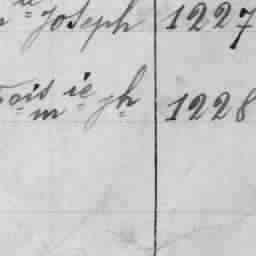 Joseph 1227
ois ie m ph 1228